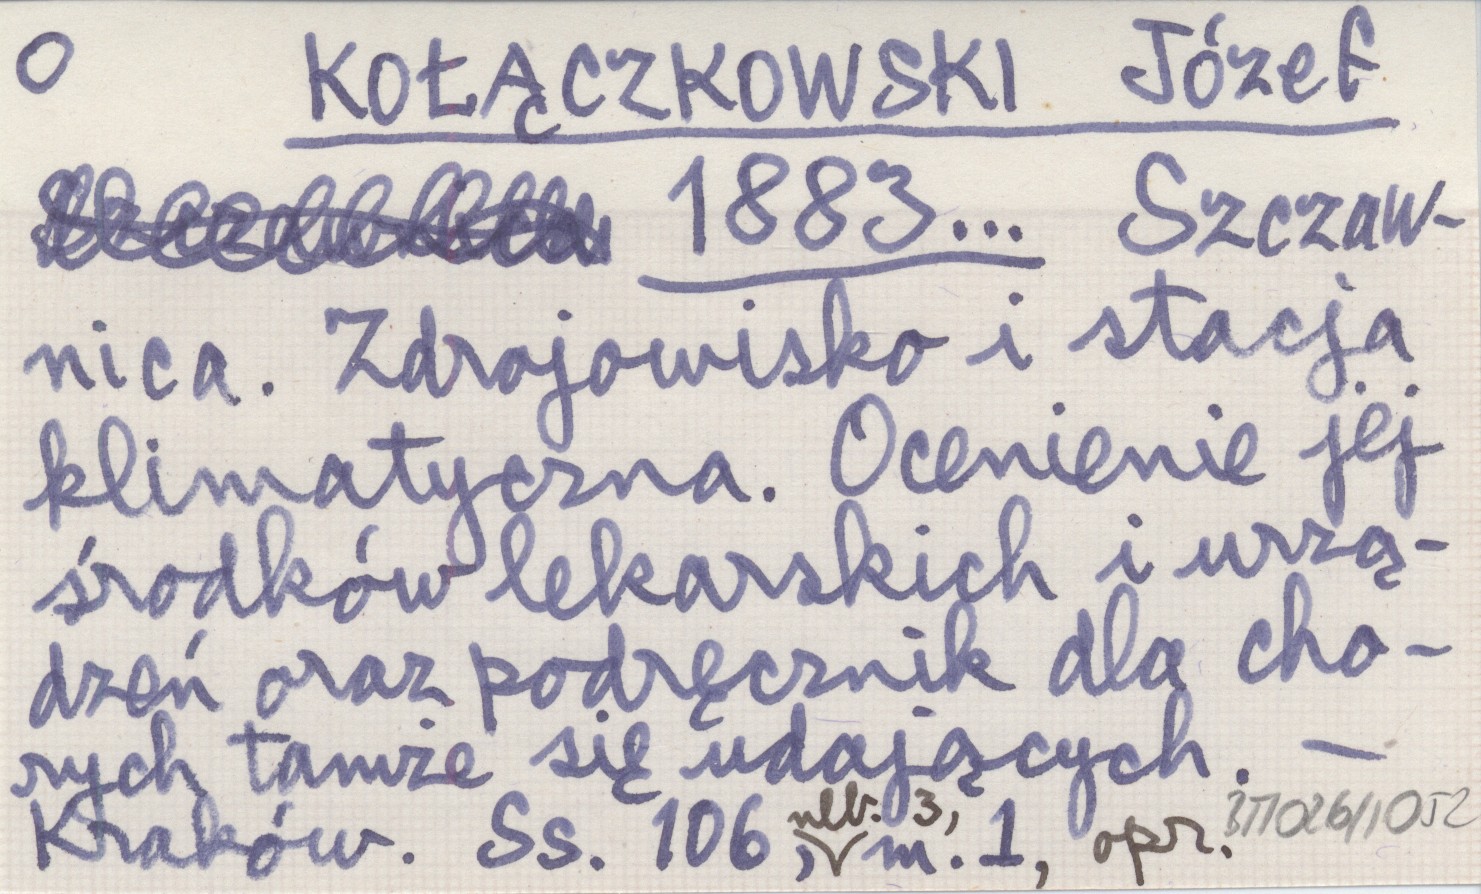 O KOŁĄCZKOWSKI Józef
1883... Szczaw-
nica. Zdrojowisko i stacja
klimatyczna. Ocenienie jej
środków lekarskich i urzą-
dzeń oraz podręcznik dla cho-
rych tamże się udających. —
Kraków. Ss. 106, nlb. 3, m. 1, opr.